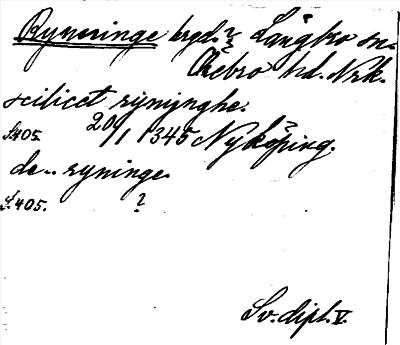 Rynninge bryd.? Långbro sn.
Örebro hd. Nrk.
scilicet rynynghe.
S. 405. 20/1 1345 Nyköping.
de.. ryninge.
S. 405. ?
Sv. dipl. V.